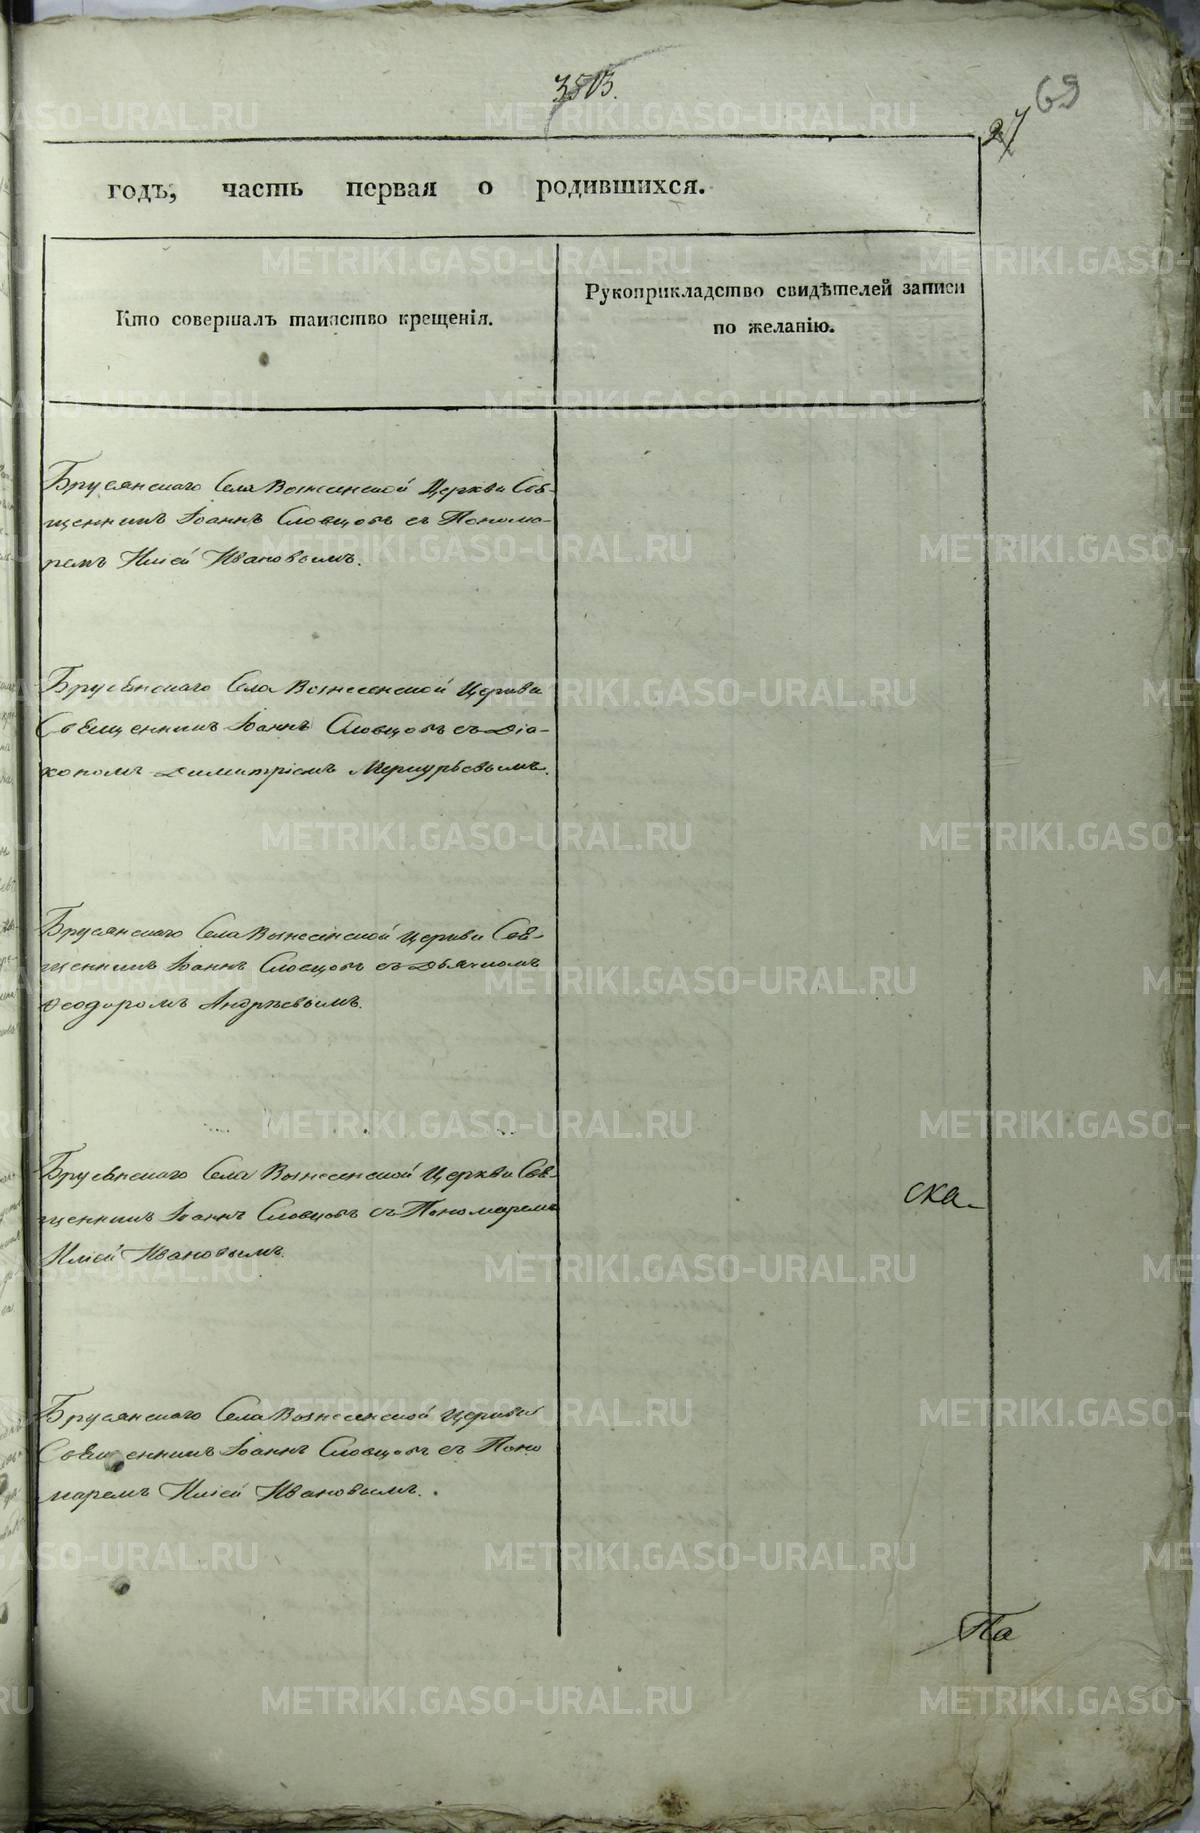 3513.
69
27
годъ, часть первая о родившихся.
Кто совершалъ таинство крещенія.
Рукоприкладство свидѣтелей записи
по желанію.
Брусянскаго Села Вознесенской Церкви Свя-
щенникъ Іоаннъ Словцовъ съ Понома-
ремъ Иліей Ивановымъ.
Брусянскаго Села Вознесенской Церкви
Священникъ Іоаннъ Словцовъ съ Діа-
кономъ Димитріемъ Меркурьевымъ.
Брусянскаго Села Вознесенской Церкви Свя-
щенникъ Іоаннъ Словцовъ съ Дьячкомъ
Ѳеодоромъ Андреевымъ.
Брусянскаго Села Вознесенской Церкви Свя-
щенникъ Іоаннъ Словцовъ съ Пономаремъ
Иліей Ивановымъ.
ска-
Брусянскаго Села Вознесенской Церкви
Священникъ Іоаннъ Словцовъ съ Поно
маремъ Иліей Ивановымъ.
Па
METRIKI.GASO-URAL.RU